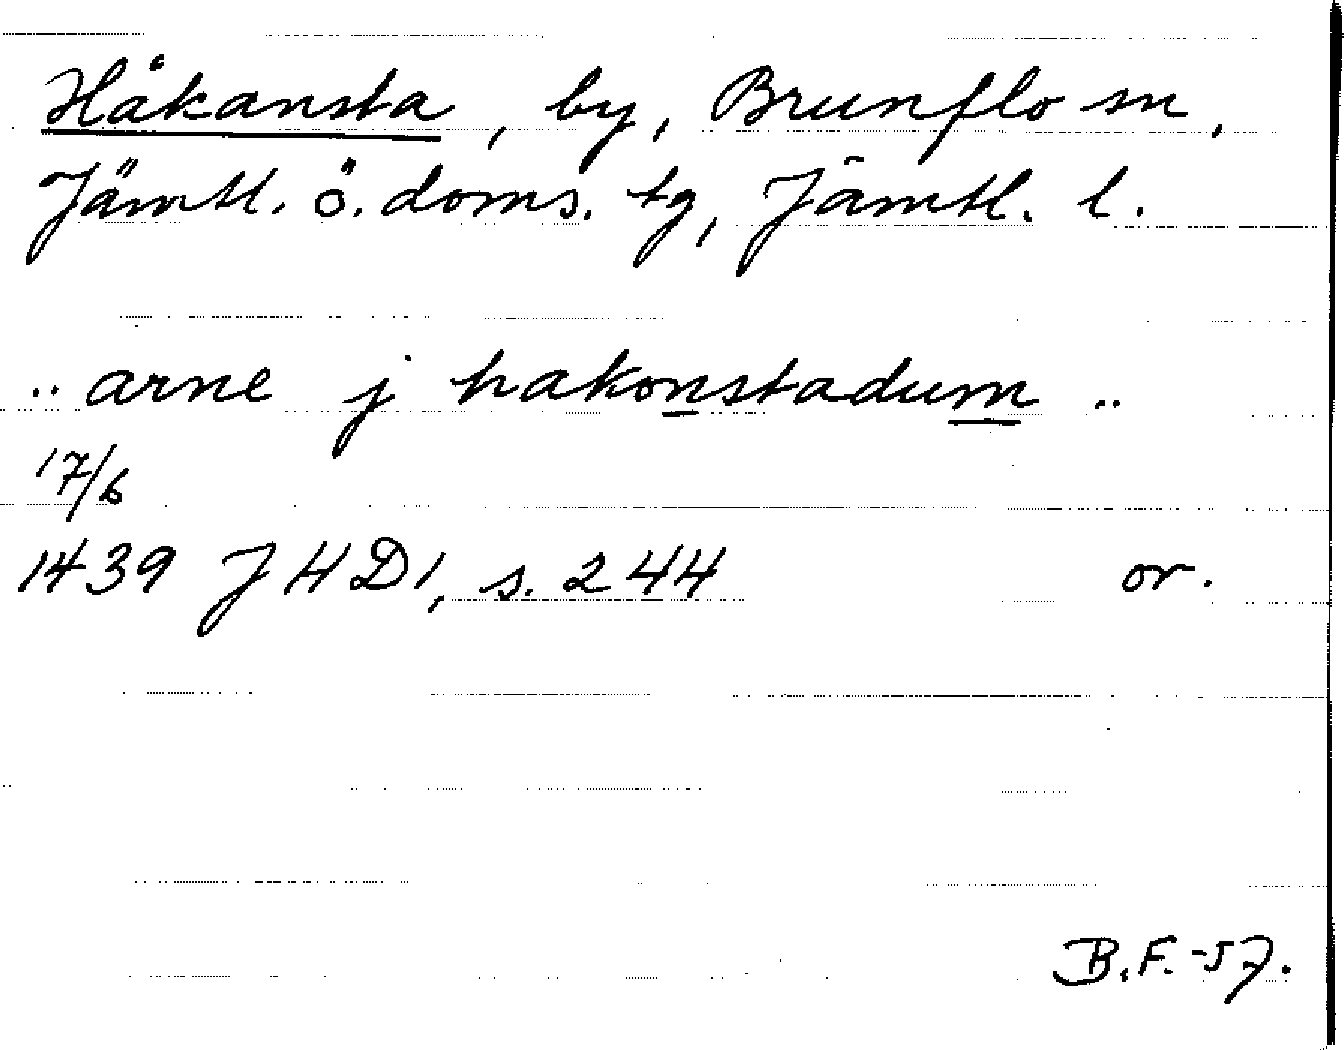 Håkansta, by, Brunflo sn,
Jämtl. ö. doms. tg, Jämtl. l.
.. arne j hakonstadum ..
17/6
1439 JHD1, s. 244 or.
B.F.-57.